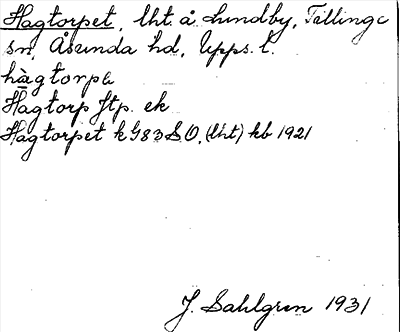 Hagtorpet, lht. å Lundby, Tillinge
sn, Åsunda hd, Upps. l.
hàgtorpə
Hagtorp ftp. ek
Hagtorpet k G83 SO, (lht) kb 1921
J. Sahlgren 1931